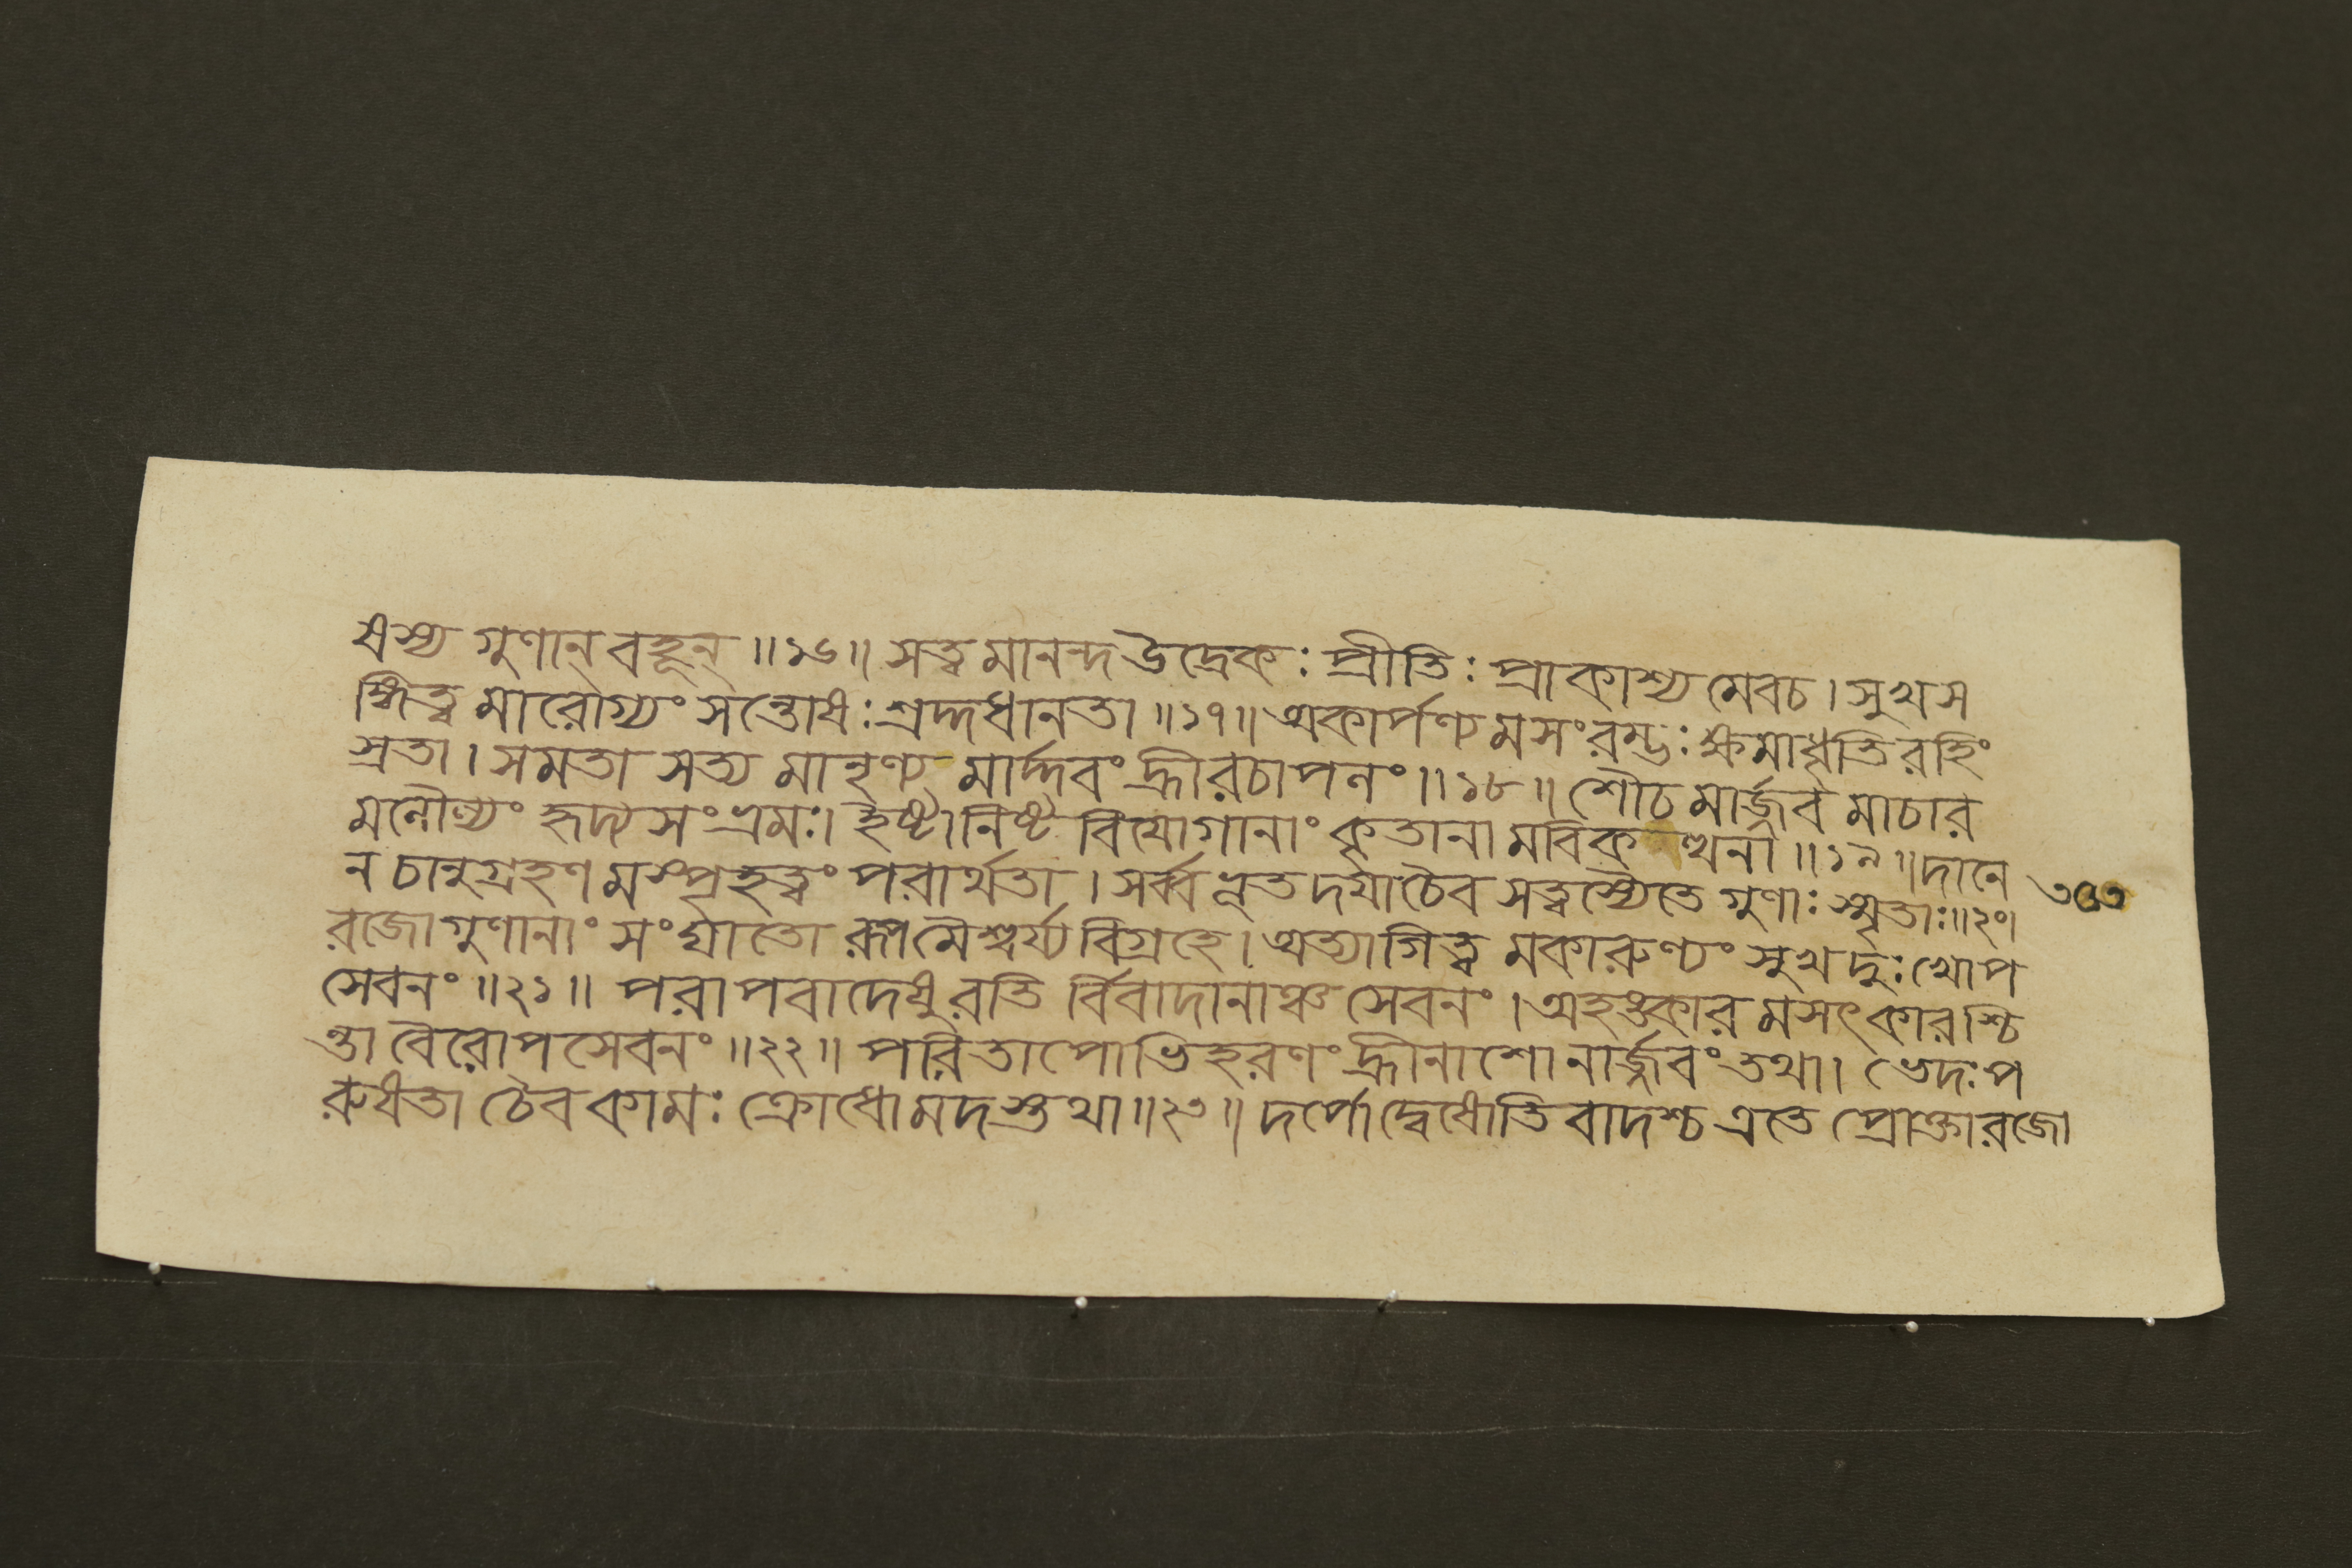 ষস্য গুণান্ বহূন্ ॥১৬॥ সত্ত্ব মানন্দ উদ্রেকঃ প্রীতিঃ প্রাকাশ্য মেবচ। সুখস
ম্পিত্ব মারোগ্যং সন্তোষঃ শ্রদ্দধানতা ॥১৭॥ অকার্পণ্য মসংরম্ভঃ ক্ষমাধৃতি রহিং
স্রতা। সমতা সত্য মানৃণ্য মার্দ্দবং হ্রীরচাপনং ॥১৮॥ শৌচ মার্জ্জব মাচার
মনৌল্যং হৃদ্যসংভ্রমঃ। ইষ্টানিষ্ট বিয়োগানাং কৃতানা মবিক ত্থনা ॥১৯॥ দানে
ন চানুগ্রহণ মস্পৃহত্বং পরার্থতা। সর্ব্বভূত দয়াচৈব সত্ত্বস্যৈতে গুণাঃ স্মৃতাঃ॥২০। ৩৫৩
রজোগুণানাং সংর্ঘাতো রূপমৈশ্বর্য্য বিগ্রহে। অত্যাগিত্ব মকারুণ্যং সুখদুঃখোপ
সেবনং ॥২১॥ পরাপবাদেষু রতি র্বিবাদানাঞ্চ সেবনং। অহঙ্কার মসৎকারশ্চি
ন্তা বৈরোপসেবনং ॥২২॥ পরিতাপোভিহরণং হ্রীনাশোনার্জ্জবং তথা। ভেদঃ প
রুষতা চৈব কামঃ ক্রোধো মদস্তথা ॥২৩॥ দর্পোদ্বেষোতিবাদশ্চ এতে প্রোক্তারজো